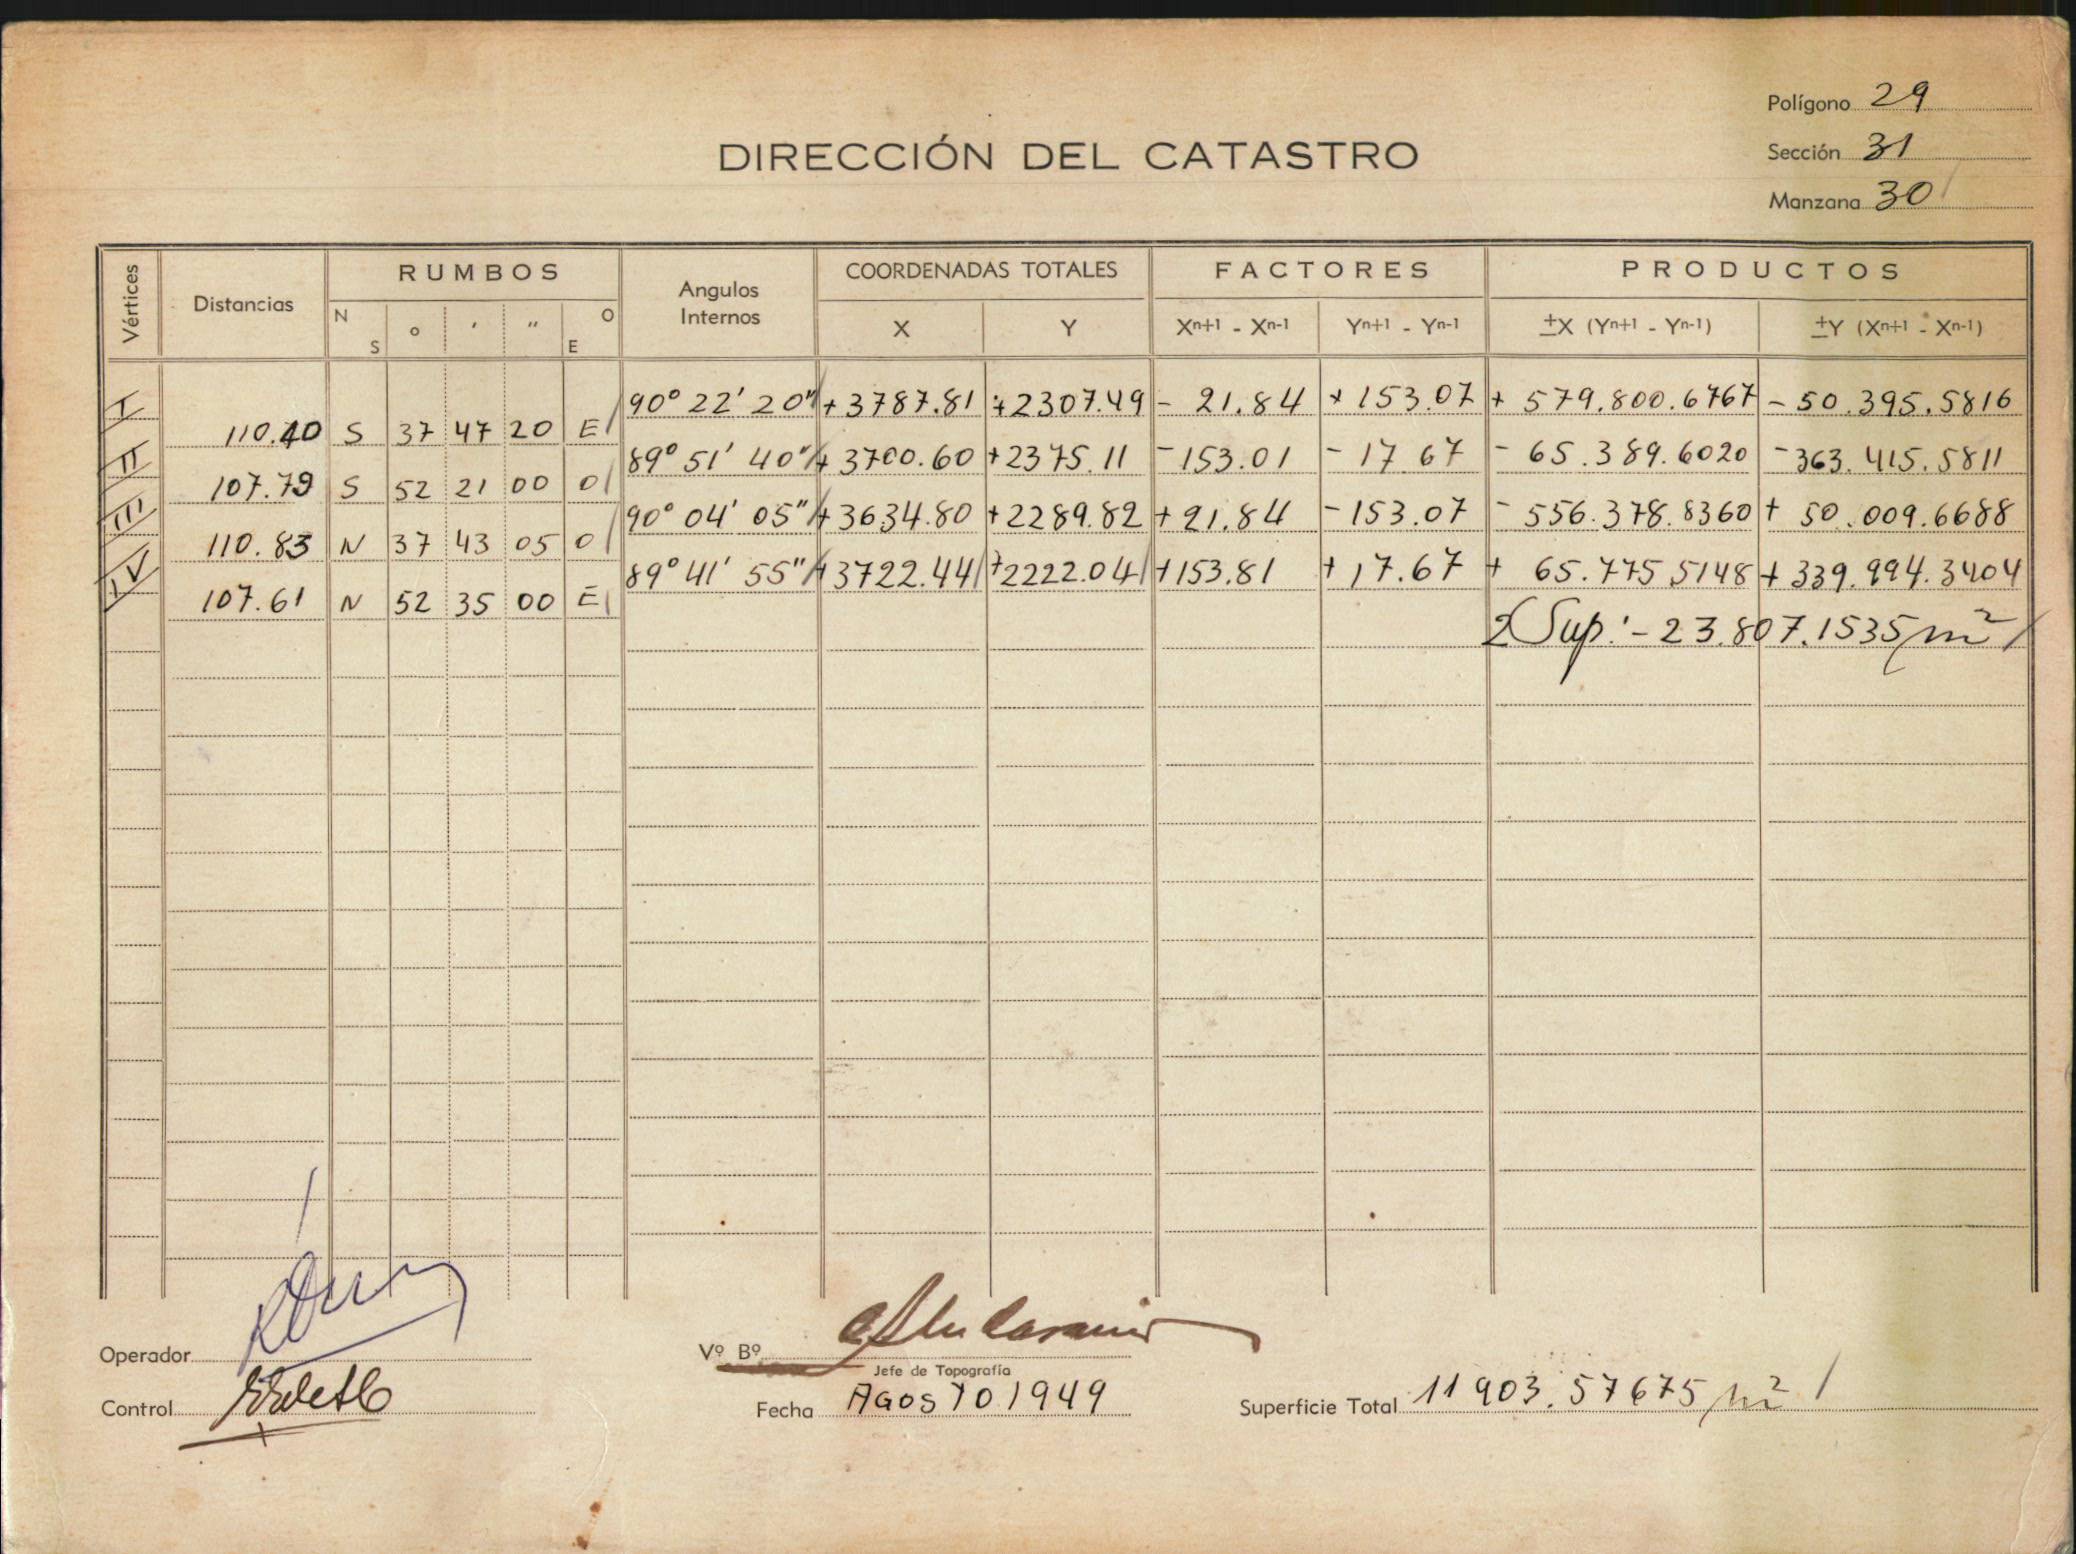 Polígono 29
DIRECCIÓN DEL CATASTRO
Sección 31
Manzana 30
Vértices Distancias RUMBOS Angulos Internos COORDENADAS TOTALES FACTORES PRODUCTOS
N S ° ' " O E X Y Xn+1 - Xn-1 Yn+1 - Yn-1 ±X (Yn+1 - Yn-1) ±Y (Xn+1 - Xn-1)
I 90° 22' 20" +3787.81 +2307.49 - 21.84 + 153.07 + 579.800.6767 - 50.395.5816
110.40 S 37 47 20 E
II 89° 51' 40" + 3700.60 +2375.11 -153.01 - 17 67 - 65.389.6020 -363.415.5811
107.79 S 52 21 00 O
III 90° 04' 05" + 3634.80 +2289.82 +21.84 -153.07 - 556.378.8360 + 50.009.6688
110.83 N 37 43 05 O
IV 89° 41' 55" +3722.44 +2222.04 +153.81 + 17.67 + 65.775 5148 + 339.994.3404
107.61 N 52 35 00 E
2 Sup: - 23.807.1535 m²
Operador
Vº Bº
Jefe de Topografía
Control
Fecha AGOSTO 1949
Superficie Total 11 903.57675 m²